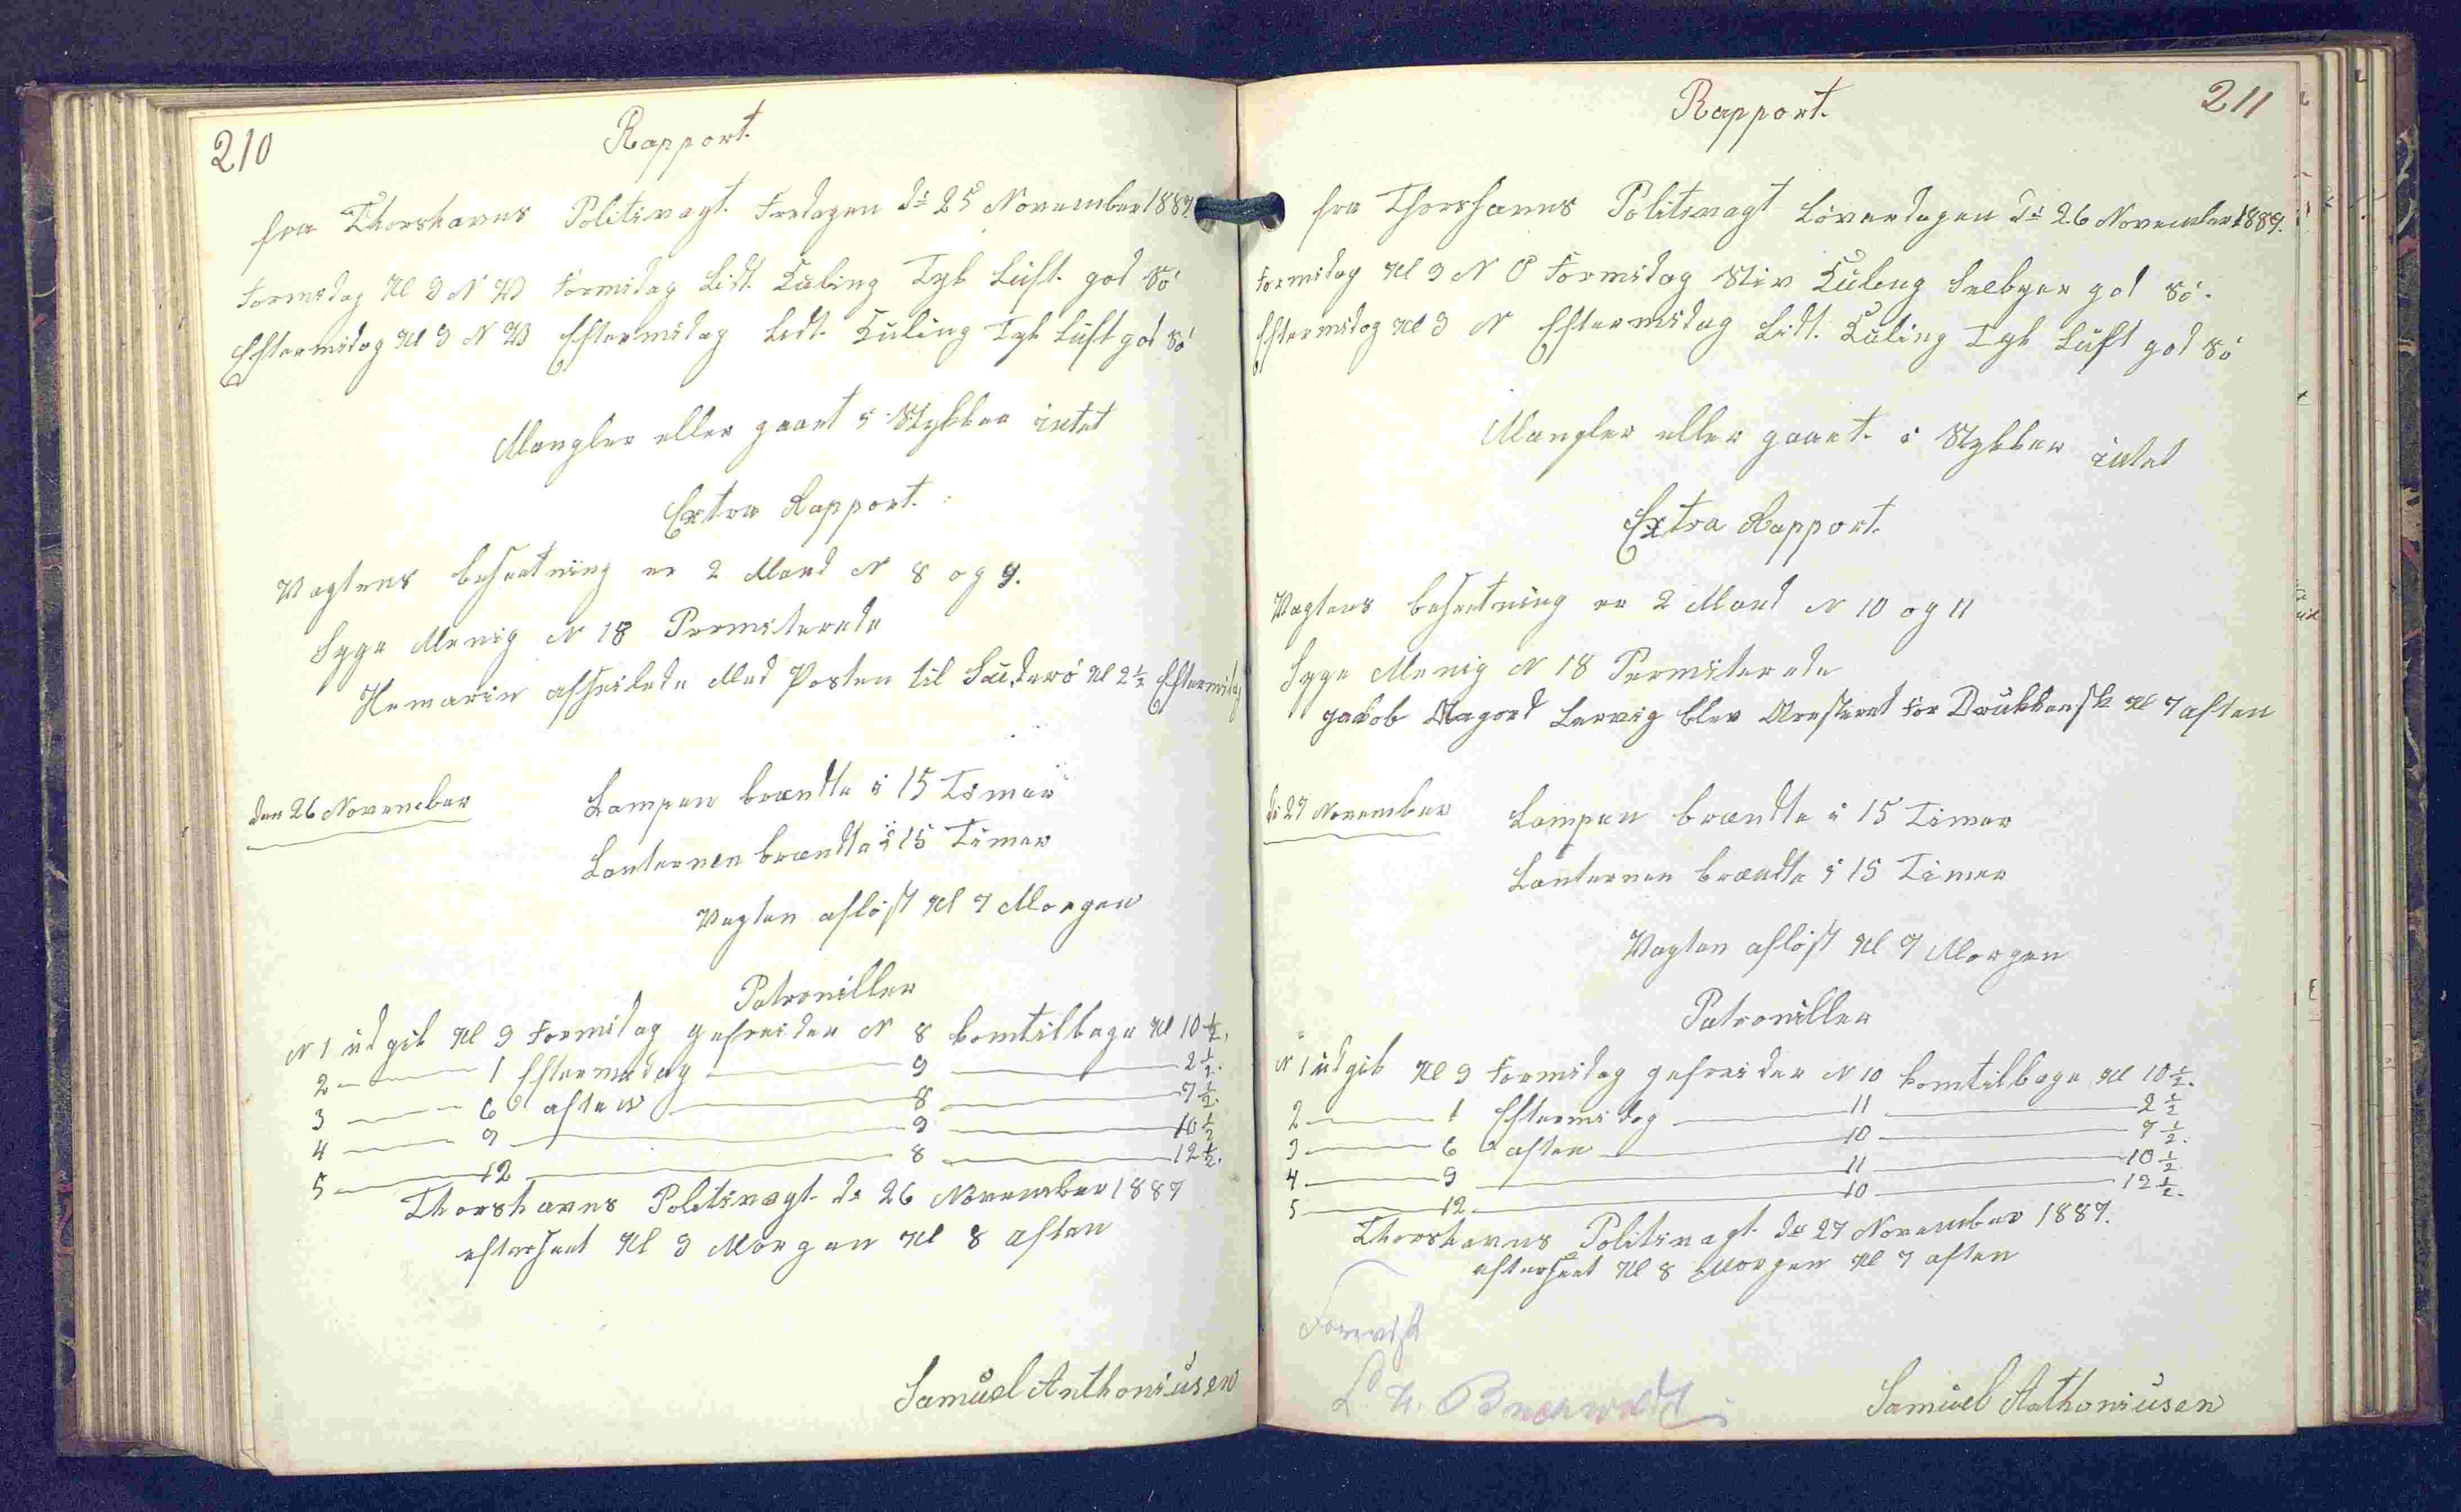 210
Rapport.
fra Thorshavns Politivagt. Fredagen de 25 November 1887
Formidag Kl 9 N W Formidag Lidt. Kuling Tyk Luft. god Sö
Eftermidag Kl 3 N W Eftermidag Lidt. Kuling Tyk Luft god Sö
Mangler eller gaaet i Stykker intet
Extra Rapport.
Vagtens besætning er 2 Mand N 8 og 9.
Syge Menig N 18 Permiterede
afseilede Med Posten til Suderö Kl 2½ Eftermidag
den 26 November Lampen brændte i 15 Timer
Lanternen brændte i 15 Timer
Vagten aflöst Kl 7 Morgen
Patrouiller
N 1 udgik Kl 9 Formidag gefreider N 8 komtilbage Kl 10½.
2 — 1 Eftermidag — 9 — 2½.
3 — 6 aften — 8 — 7½.
4 — 9 — 9 — 10½
5 — 12 — 8 — 12½.
Thorshavns Politivagt. de 26 November 1887
efterseet Kl 9 Morgen Kl 8 aften
Samuel Anthoniusen
211
Rapport.
fra Thorshavns Politivagt Löverdagen de 26 November 1887.
Formidag Kl 9 N O Formidag Stiv Kuling Seebyer god Sö.
Eftermidag Kl 3 N Eftermidag Lidt. Kuling Tyk Luft god Sö
Mangler eller gaaet. i Stykker intet
Extra Rapport.
Vagtens besætning er 2 Mand N 10 og 11
Syge Menig N 18 Permiterede
Jakob Lervig blev Aresteret for Drukkensk Kl 7 aften
de 27 November Lampen brændte i 15 Timer
Lanternen brændte i 15 Timer
Vagten aflöst Kl 7 Morgen
Patrouiller
N 1 udgik Kl 9 Formidag gefreider N 10 komtilbage Kl 10½.
2 — 1 Eftermidag — 11 — 2½
3 — 6 aften — 10 — 7½.
4 — 9 — 11 — 10½
5 — 12 — 10 — 12½.
Thorshavns Politivagt de 27 November 1887.
efterseet Kl 8 Morgen Kl 7 aften
Forevist
Samuel Anthoniusen